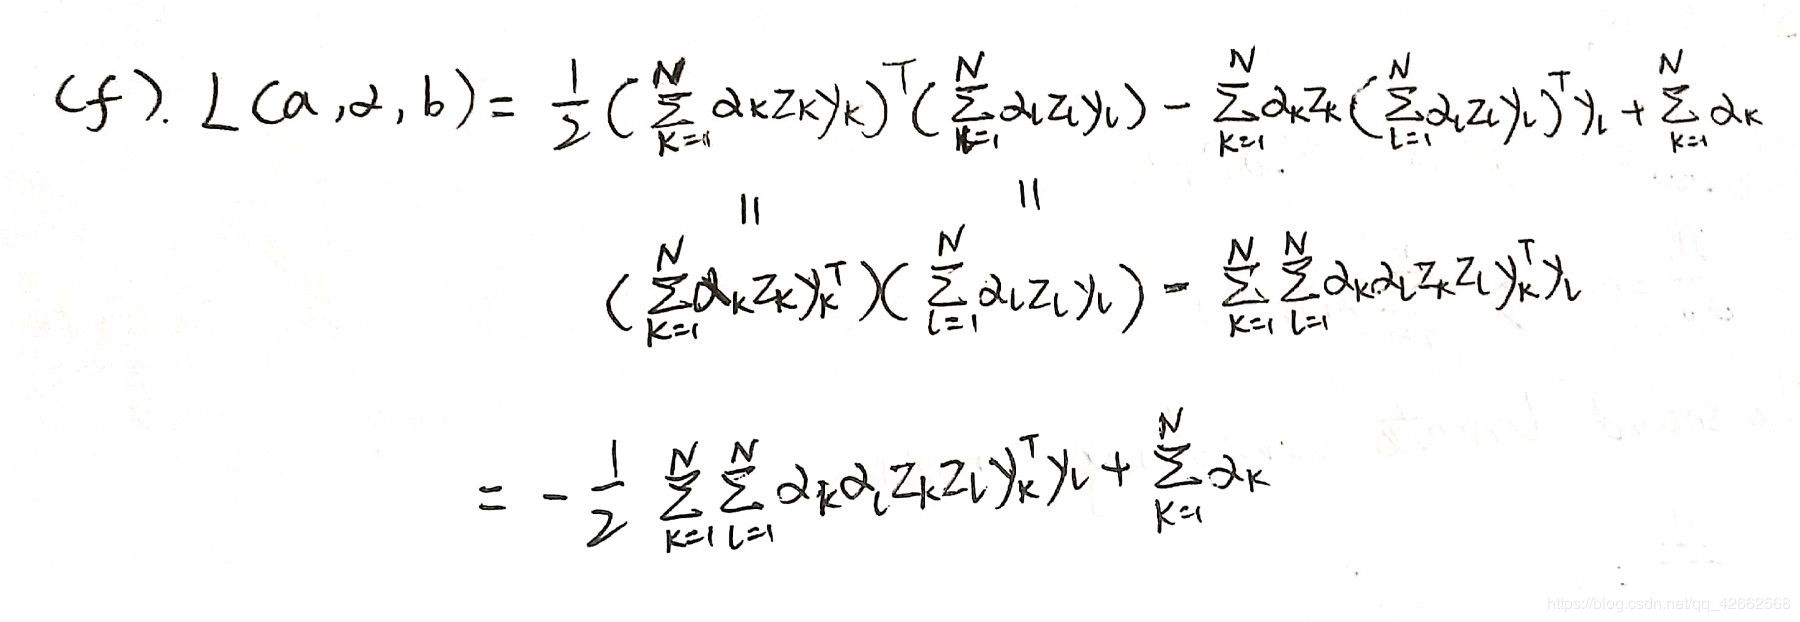 (f). L(a,α,b) = 1/2 (∑_{k=1}^{N} α_k z_k y_k)^T (∑_{l=1}^{N} α_l z_l y_l) − ∑_{k=1}^{N} α_k z_k (∑_{l=1}^{N} α_l z_l y_l)^T y_l + ∑_{k=1}^{N} α_k
|| ||
(∑_{k=1}^{N} α_k z_k y_k^T)(∑_{l=1}^{N} α_l z_l y_l) − ∑_{k=1}^{N} ∑_{l=1}^{N} α_k α_l z_k z_l y_k^T y_l
= − 1/2 ∑_{k=1}^{N} ∑_{l=1}^{N} α_k α_l z_k z_l y_k^T y_l + ∑_{k=1}^{N} α_k
https://blog.csdn.net/qq_42662568